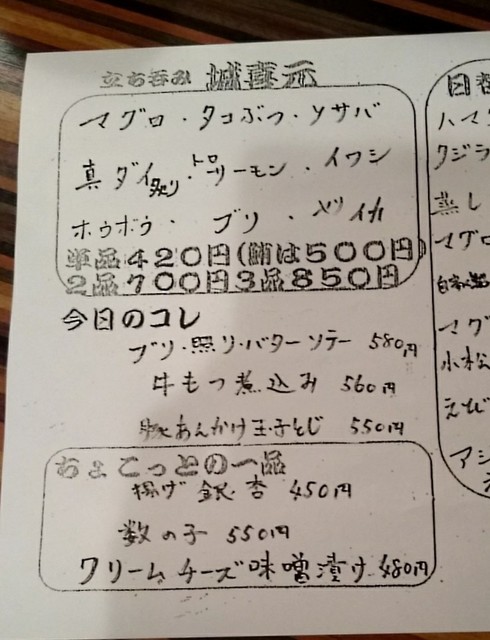 立ち呑み 城喜元
マグロ・タコぶつ・〆サバ
真ダイ炙り・トロサーモン・イワシ
ホウボウ・ブリ・ヤリイカ
単品420円(鮪は500円)
2品700円3品850円
今日のコレ
ブリ・照り・バターソテー 580円
牛もつ煮込み 560円
豚あんかけ玉子とじ 550円
ちょこっとの一品
揚げ銀杏 450円
数の子 550円
クリームチーズ味噌漬け 480円
日替
ハマグ
クジラ
蒸し
マグロ
マグ
小松
えび
アジ